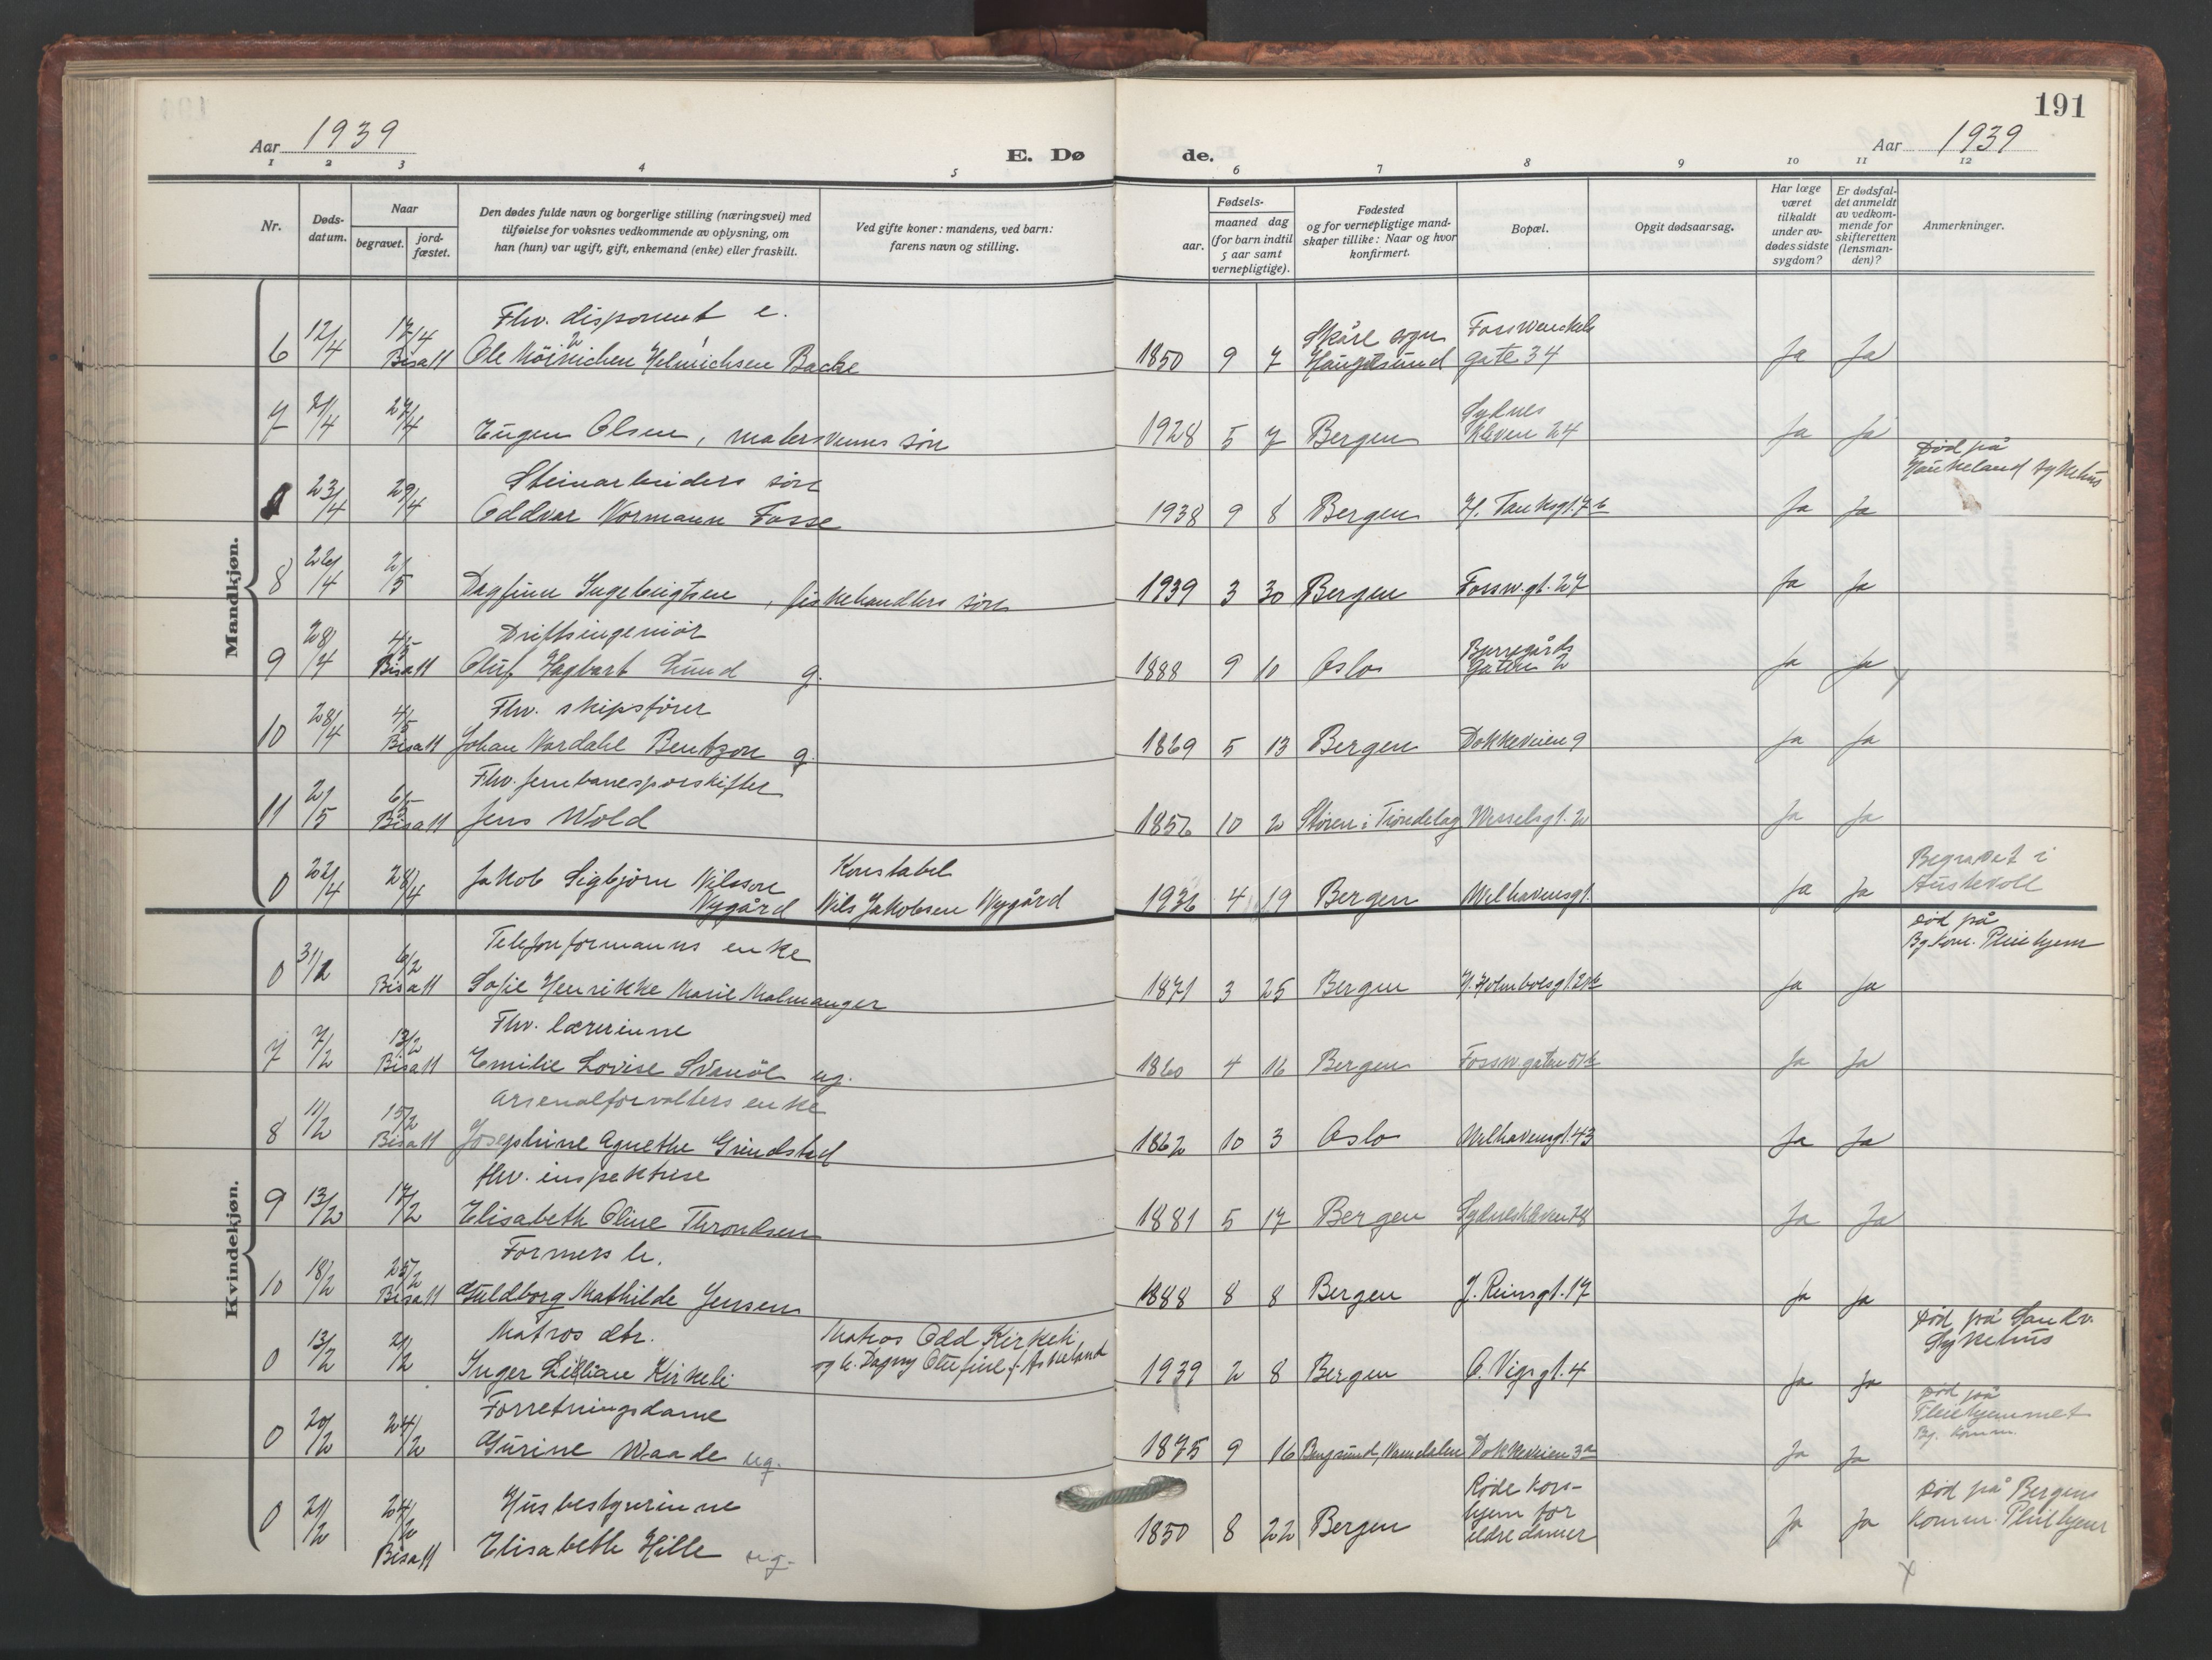 191
Aar 1939
E. Dø de.
Aar 1939
1 2 3 4 5 6 7 8 9 10 11 12
Nr.
Døds-
datum.
Naar
begravet.
jord-
fæstet.
Den dødes fulde navn og borgerlige stilling (næringsvei) med
tilføielse for voksnes vedkommende av oplysning, om
han (hun) var ugift, gift, enkemand (enke) eller fraskilt.
Ved gifte koner: mandens, ved barn:
farens navn og stilling.
Fødsels-
aar.
maaned dag
(for barn indtil
5 aar samt
vernepligtige).
Fødested
og for vernepligtige mand-
skaper tillike: Naar og hvor
konfirmert.
Bopæl.
Opgit dødsaarsag.
Har læge
været
tilkaldt
under av-
dødes sidste
sygdom?
Er dødsfal-
det anmeldt
av vedkom-
mende for
skifteretten
(lensman-
den)?
Anmerkninger.
Mandkjøn.
Fhv. disponent e.
6 12/4 17/4 Bisatt Ole Helmichsen Backe 1850 9 7 Skåre sogn Haugesund Fosswinckels gate 34 Ja Ja
7 21/4 27/4 Eugen Olsen, malersvenns søn 1928 5 7 Bergen Sydnes kleven 24 Ja Ja
Steinarbeiders søn
23/4 29/4 Oddvar Normann Fosse 1938 9 8 Bergen H. Tanksgt. 7b Ja Ja Død på Haukeland sykehus
8 26/4 2/5 Dagfinn Ingebrigtsen, fiskehandlers søn 1939 3 30 Bergen Fossw.gt. 27 Ja Ja
Driftsingeniør
9 28/4 4/5 Bisatt Oluf Hagbart Lund g. 1888 9 10 Oslo Bjerregårds Gaten 2 Ja Ja
Fhv. skipsfører
10 28/4 4/5 Bisatt Johan Nordahl Bentzon g. 1869 5 13 Bergen Dokkeveien 9 Ja Ja
Fhv. jernbanesporskifter
11 2/5 6/5 Bisatt Jens Wold 1856 10 2 Støren i Trøndelag Wesselsgt. 2 Ja Ja
0 22/4 28/4 Jakob Sigbjørn Nilsson Nygård Konstabel Nils Jakobsen Nygård 1936 4 19 Bergen Welhavensgt. Ja Ja Begravet i Austevoll
Kvindekjøn.
Telefonformanns enke
0 31/1 6/2 Bisatt Sofie Henrikke Marie Malmanger 1871 3 25 Bergen Ja Ja Død på Bg. kom. Pleiehjem
Fhv. lærerinne
7 7/2 13/2 Bisatt Emilie Lovise Svanøe ug. 1860 4 16 Bergen Fossw.gaten Ja Ja
Arsenalforvalters enke
8 11/2 15/2 Bisatt Josephine Agnethe Grindstad 1862 10 3 Oslo Welhavensgt. 43 Ja Ja
fhv. inspektrise
9 13/2 17/2 Elisabeth Oline Throndsen 1881 5 17 Bergen Sydneskleven 28 Ja Ja
Formers h.
10 18/2 25/2 Bisatt Guldborg Mathilde Jensen 1888 8 8 Bergen J. Reinsgt. 17 Ja Ja
Matros dtr.
0 13/2 21/2 Inger Lillian Kirkeli Matros Odd Kirkeli og h. Dagny Olufine f. Askeland 1939 2 8 Bergen O. Vigsgt. 4 Ja Ja Død på Sandv. Sykehus
Forretningsdame
0 20/2 24/2 Gurine Waade ug. 1875 9 16 Bangsund, Namdalen Dokkeveien 3a Ja Ja Død på Pleiehjemmet Bg. Komm.
Husbestyrerinne
0 21/2 24/2 Bisatt Elisabeth Hille ug. 1850 8 22 Bergen Røde Kors- hjem for eldre damer Ja Ja Død på Bergens Komm. Pleiehjem
x